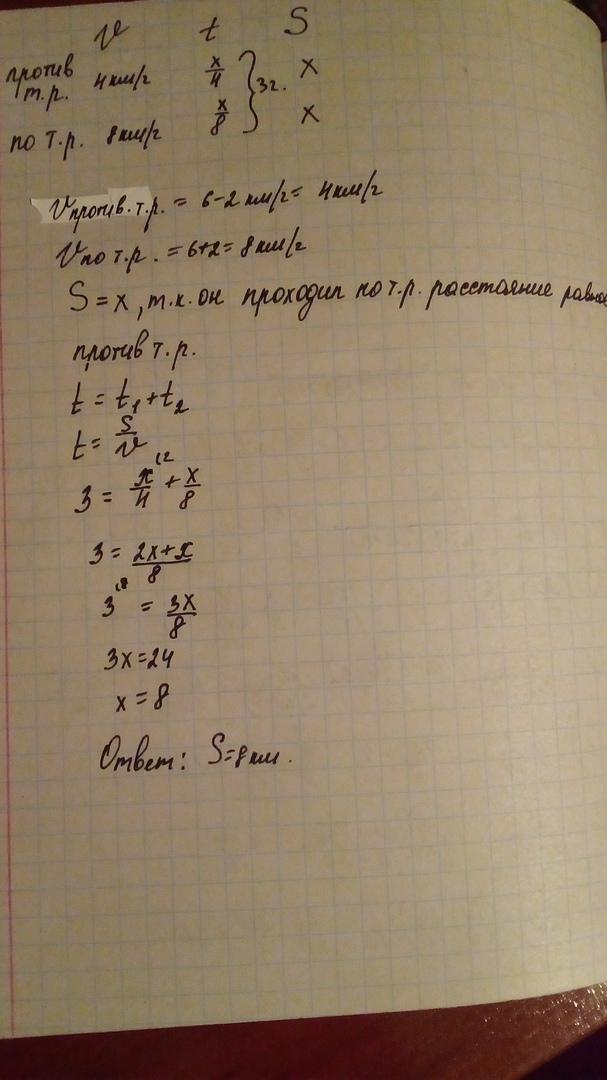 v t S
против т.р. 4 км/г x/4 } 3г. x
по т.р. 8 км/г x/8 x
V против.т.р. = 6-2 км/г = 4 км/г
V по т.р. = 6+2 = 8 км/г
S = x, т.к. он проходил по т.р. расстояние
против т.р.
t = t₁ + t₂
t = S/v
3 = x/4 (2 + x/8
3 = 2x+x/8
3 (8 = 3x/8
3x=24
x = 8
Ответ: S=8 км.